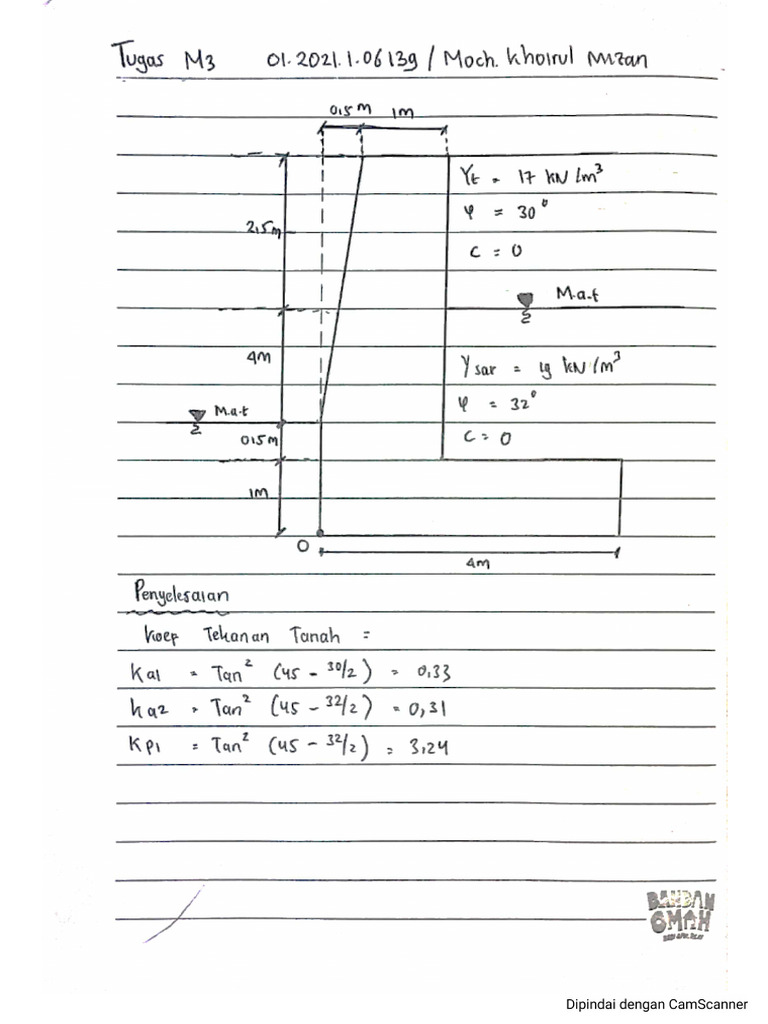 Tugas M3 01.2021.1.06139 / Moch. Khoirul Mizan
0,5 M 1m
γt = 17 kN/m³
φ = 30°
2,5m
c = 0
M.a.t
4m
γsar = 19 kN/m³
M.a.t
φ = 32°
0,5m
c = 0
1m
O
4m
Penyelesaian
Koef Tekanan Tanah =
Ka1 = Tan² (45 - 30/2) = 0,33
ka2 = Tan² (45 - 32/2) = 0,31
KP1 = Tan² (45 - 32/2) = 3,24
BANDAN
OMAH
Dipindai dengan CamScanner